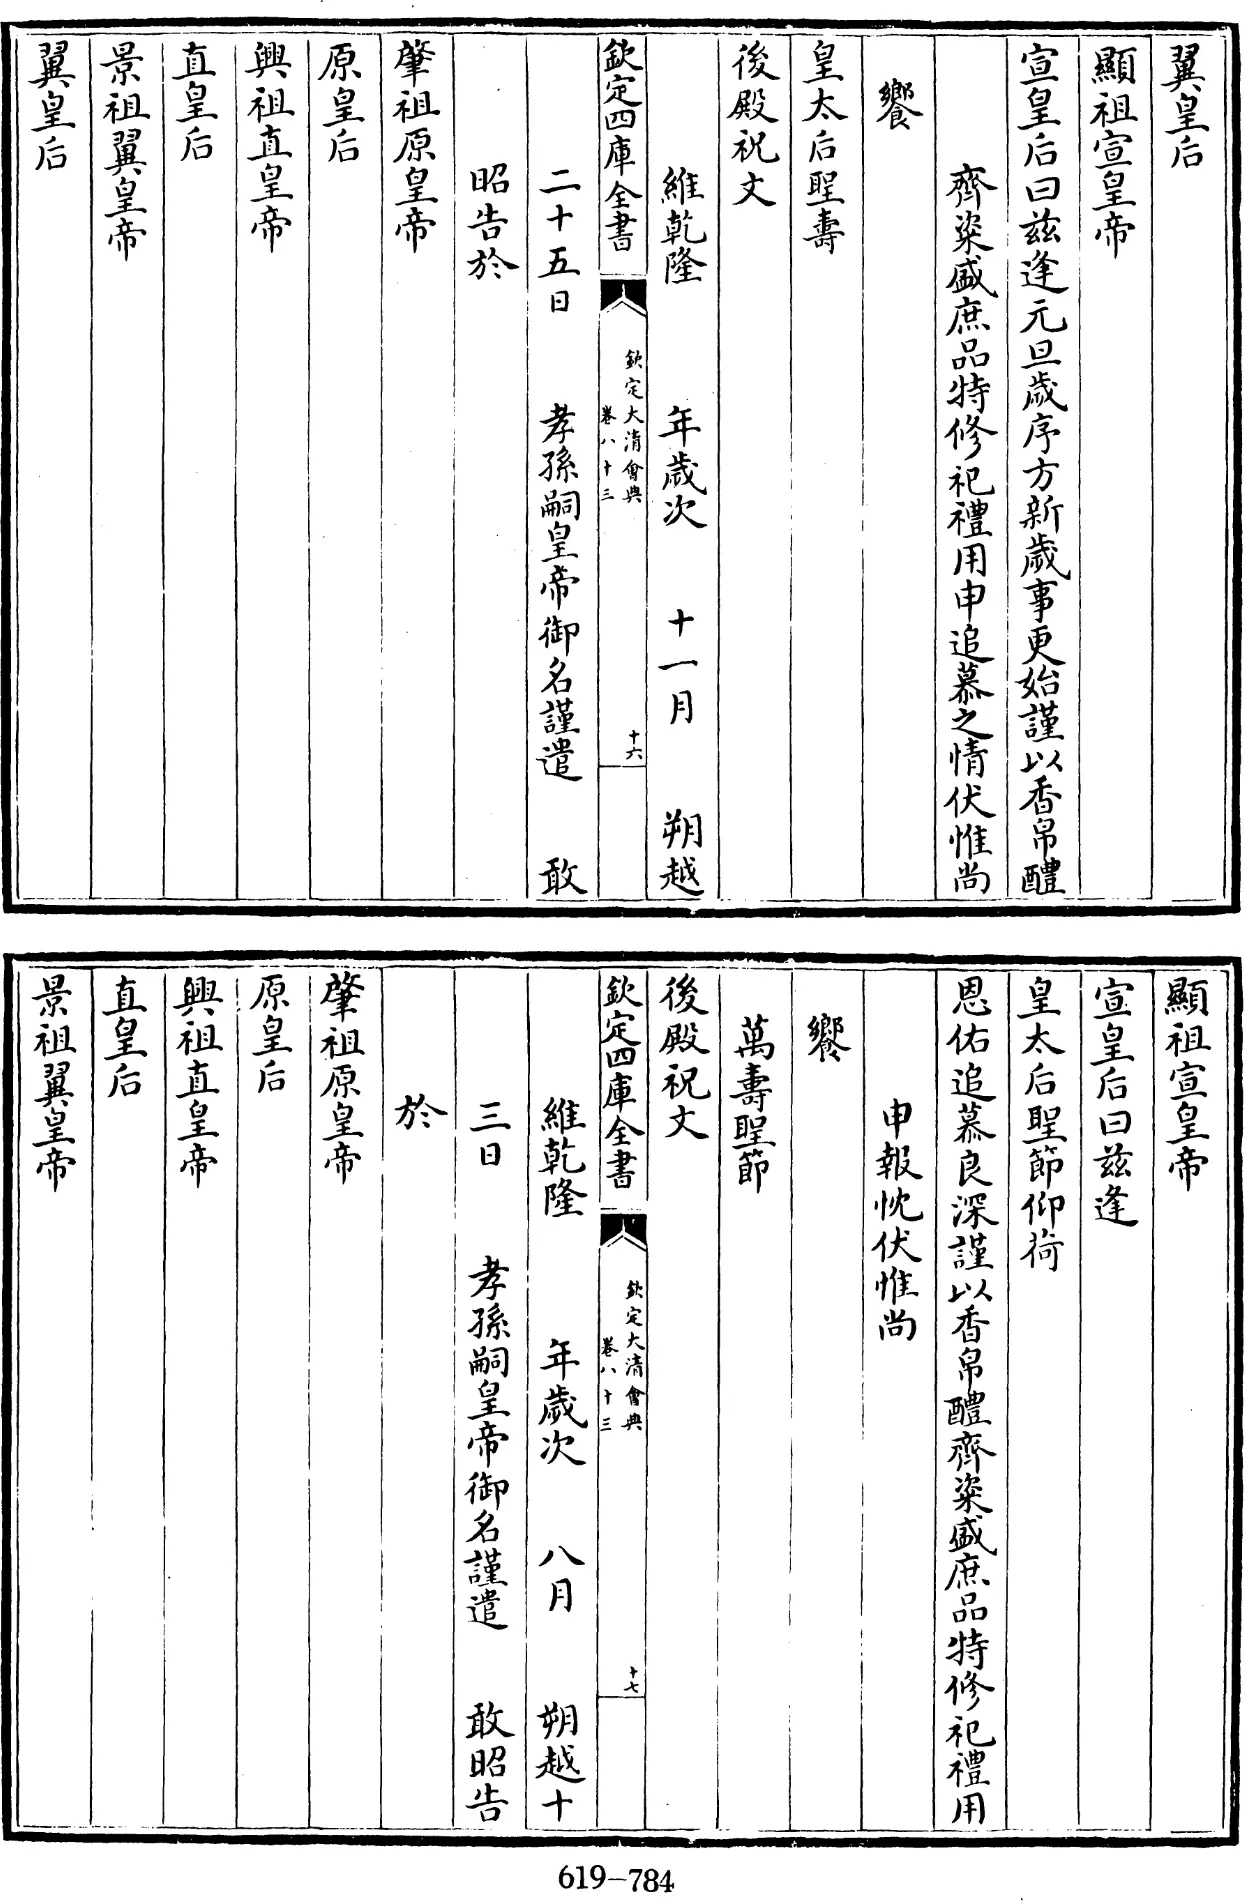 翼皇后
顯祖宣皇帝
宣皇后曰兹逢元旦歲序方新歲事更始謹以香帛醴
齊粢盛庶品特修祀禮用申追慕之情伏惟尚
饗
皇太后聖壽
後殿祝文
維乾隆　年歲次　十一月　朔越
欽定四庫全書
欽定大清會典
卷八十三
十六
二十五日　孝孫嗣皇帝御名謹遣　敢
昭告於
肇祖原皇帝
原皇后
興祖直皇帝
直皇后
景祖翼皇帝
翼皇后
顯祖宣皇帝
宣皇后曰兹逢
皇太后聖節仰荷
恩佑追慕良深謹以香帛醴齊粢盛庶品特修祀禮用
申報忱伏惟尚
饗
萬壽聖節
後殿祝文
欽定四庫全書
欽定大清會典
卷八十三
十七
維乾隆　年歲次　八月　朔越十
三日　孝孫嗣皇帝御名謹遣　敢昭告
於
肇祖原皇帝
原皇后
興祖直皇帝
直皇后
景祖翼皇帝
619-784